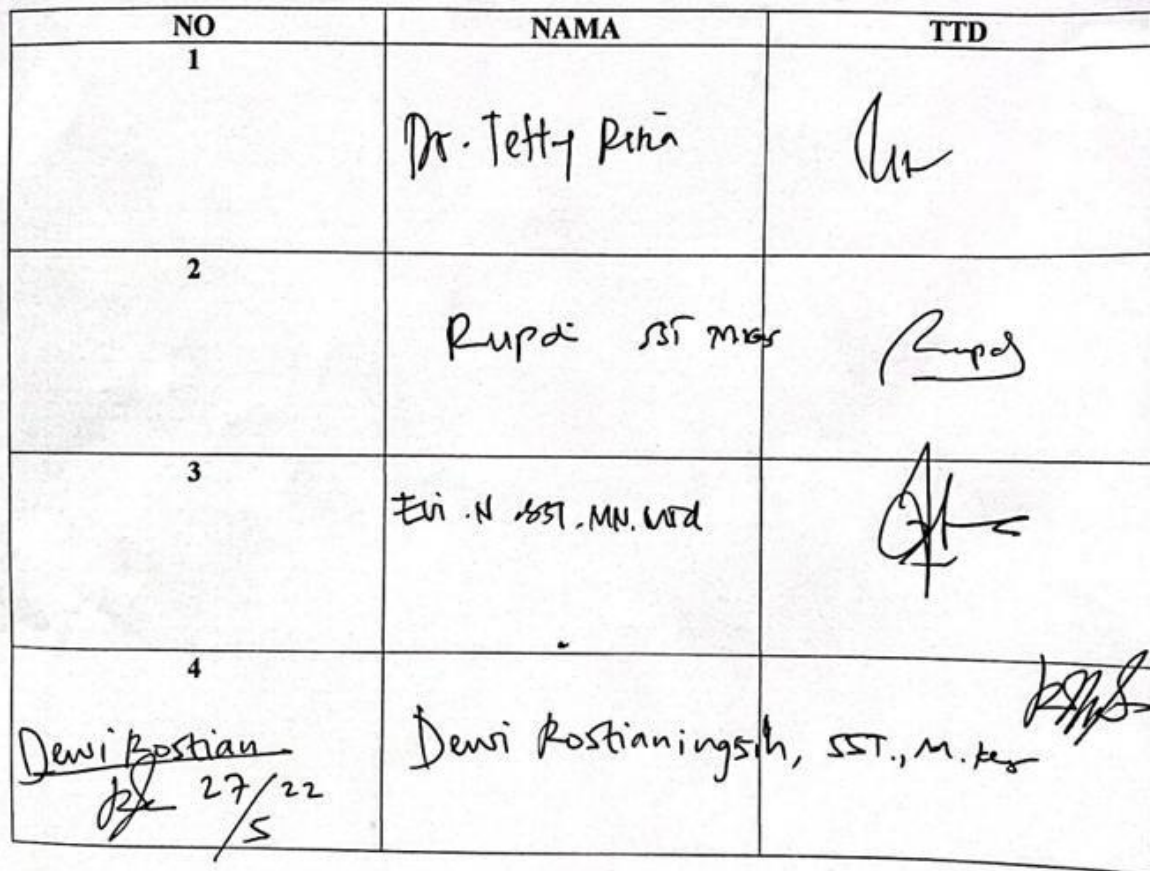 NO NAMA TTD
1
Dr. Tetty Rina
2
Rupdi SST MKes
3
Evi .N .SST. MN.
4
Dewi Rostian
27/5 22
Dewi Rostianingsih, SST., M. Kes